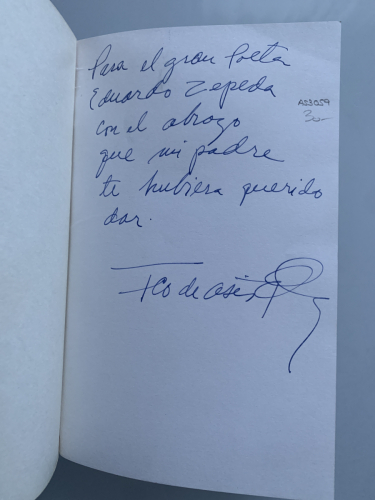 Para el gran Poeta
Eduardo Zepeda
con el abrazo
que mi padre
te hubiera querido
dar.
Fco de Asís